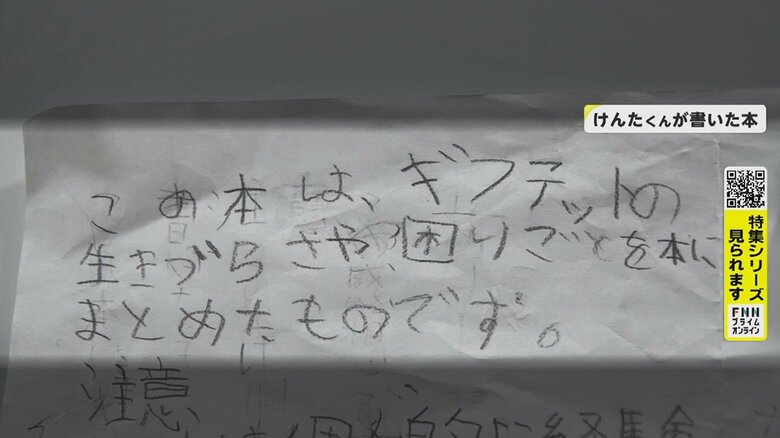 けんたくんが書いた本
この本は、ギフテットの
生きづらさや困りごとを本に
まとめたものです。
注意
特集シリーズ
見られます
FNN
プライム
オンライン